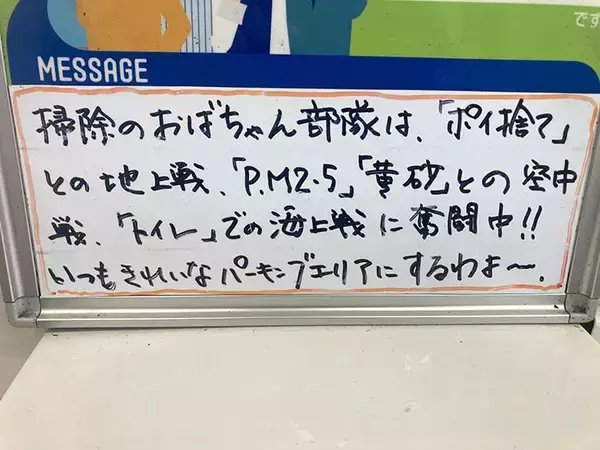 です
MESSAGE
掃除のおばちゃん部隊は、「ポイ捨て」
との地上戦、「P.M2.5」「黄砂」との空中
戦、「トイレ」での海上戦に奮闘中!!
いつもきれいなパーキングエリアにするわよ〜。